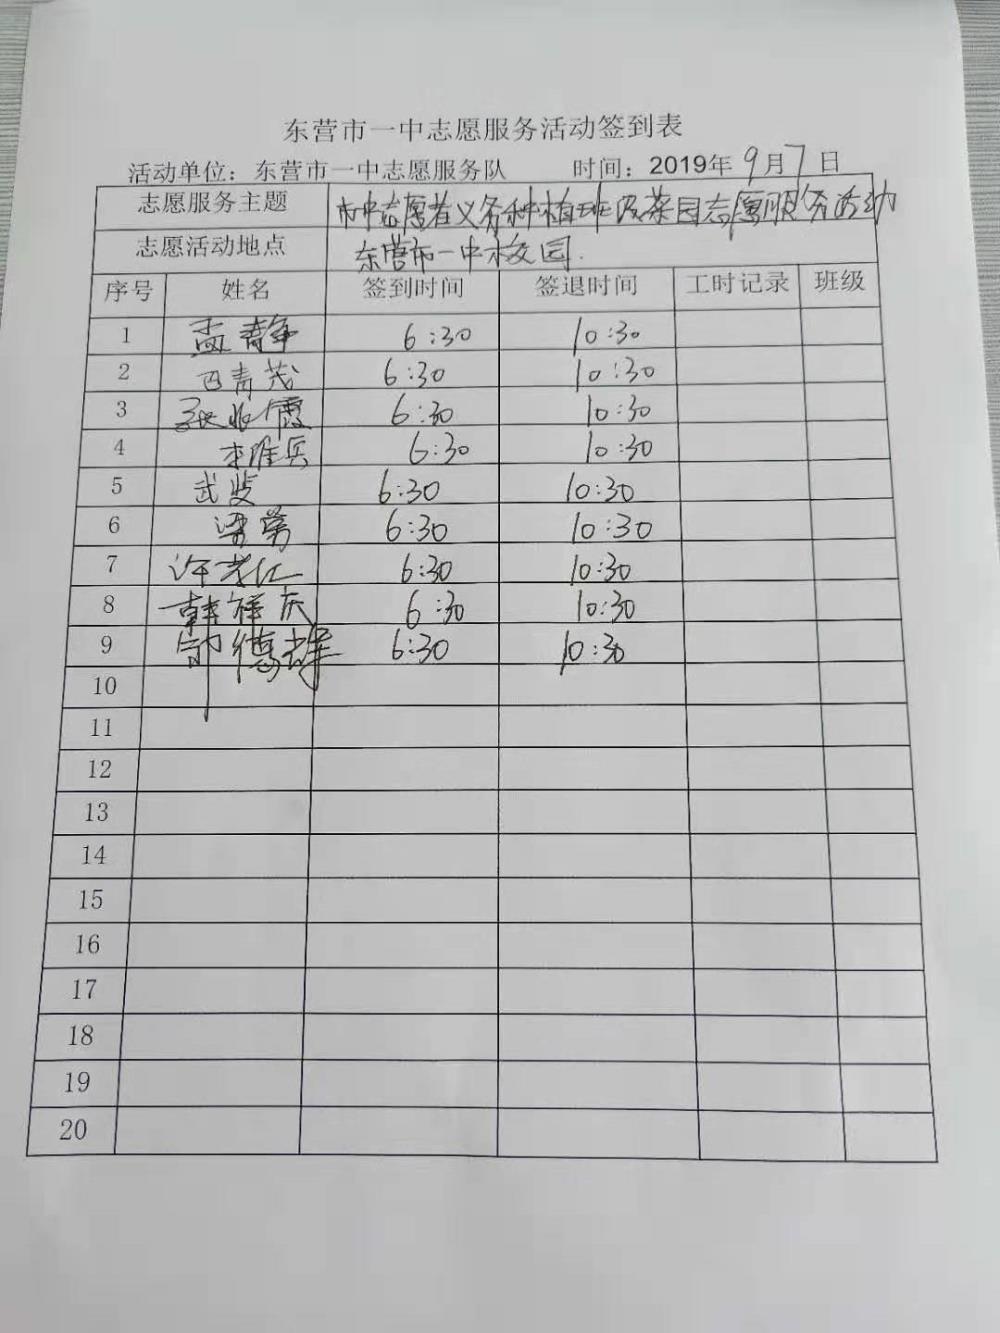 东营市一中志愿服务活动签到表
活动单位：东营市一中志愿服务队 时间：2019年9月7日
志愿服务主题 市中志愿者义务种植班级菜园志愿服务活动
志愿活动地点 东营市一中校园.
序号 姓名 签到时间 签退时间 工时记录 班级
1 孟静 6:30 10:30
2 青茂 6:30 10:30
3 张 霞 6:30 10:30
4 李唯兵 6:30 10:30
5 武斐 6:30 10:30
6 梁勇 6:30 10:30
7 许 红 6:30 10:30
8 韩祥庆 6:30 10:30
9 郭德 6:30 10:30
10
11
12
13
14
15
16
17
18
19
20